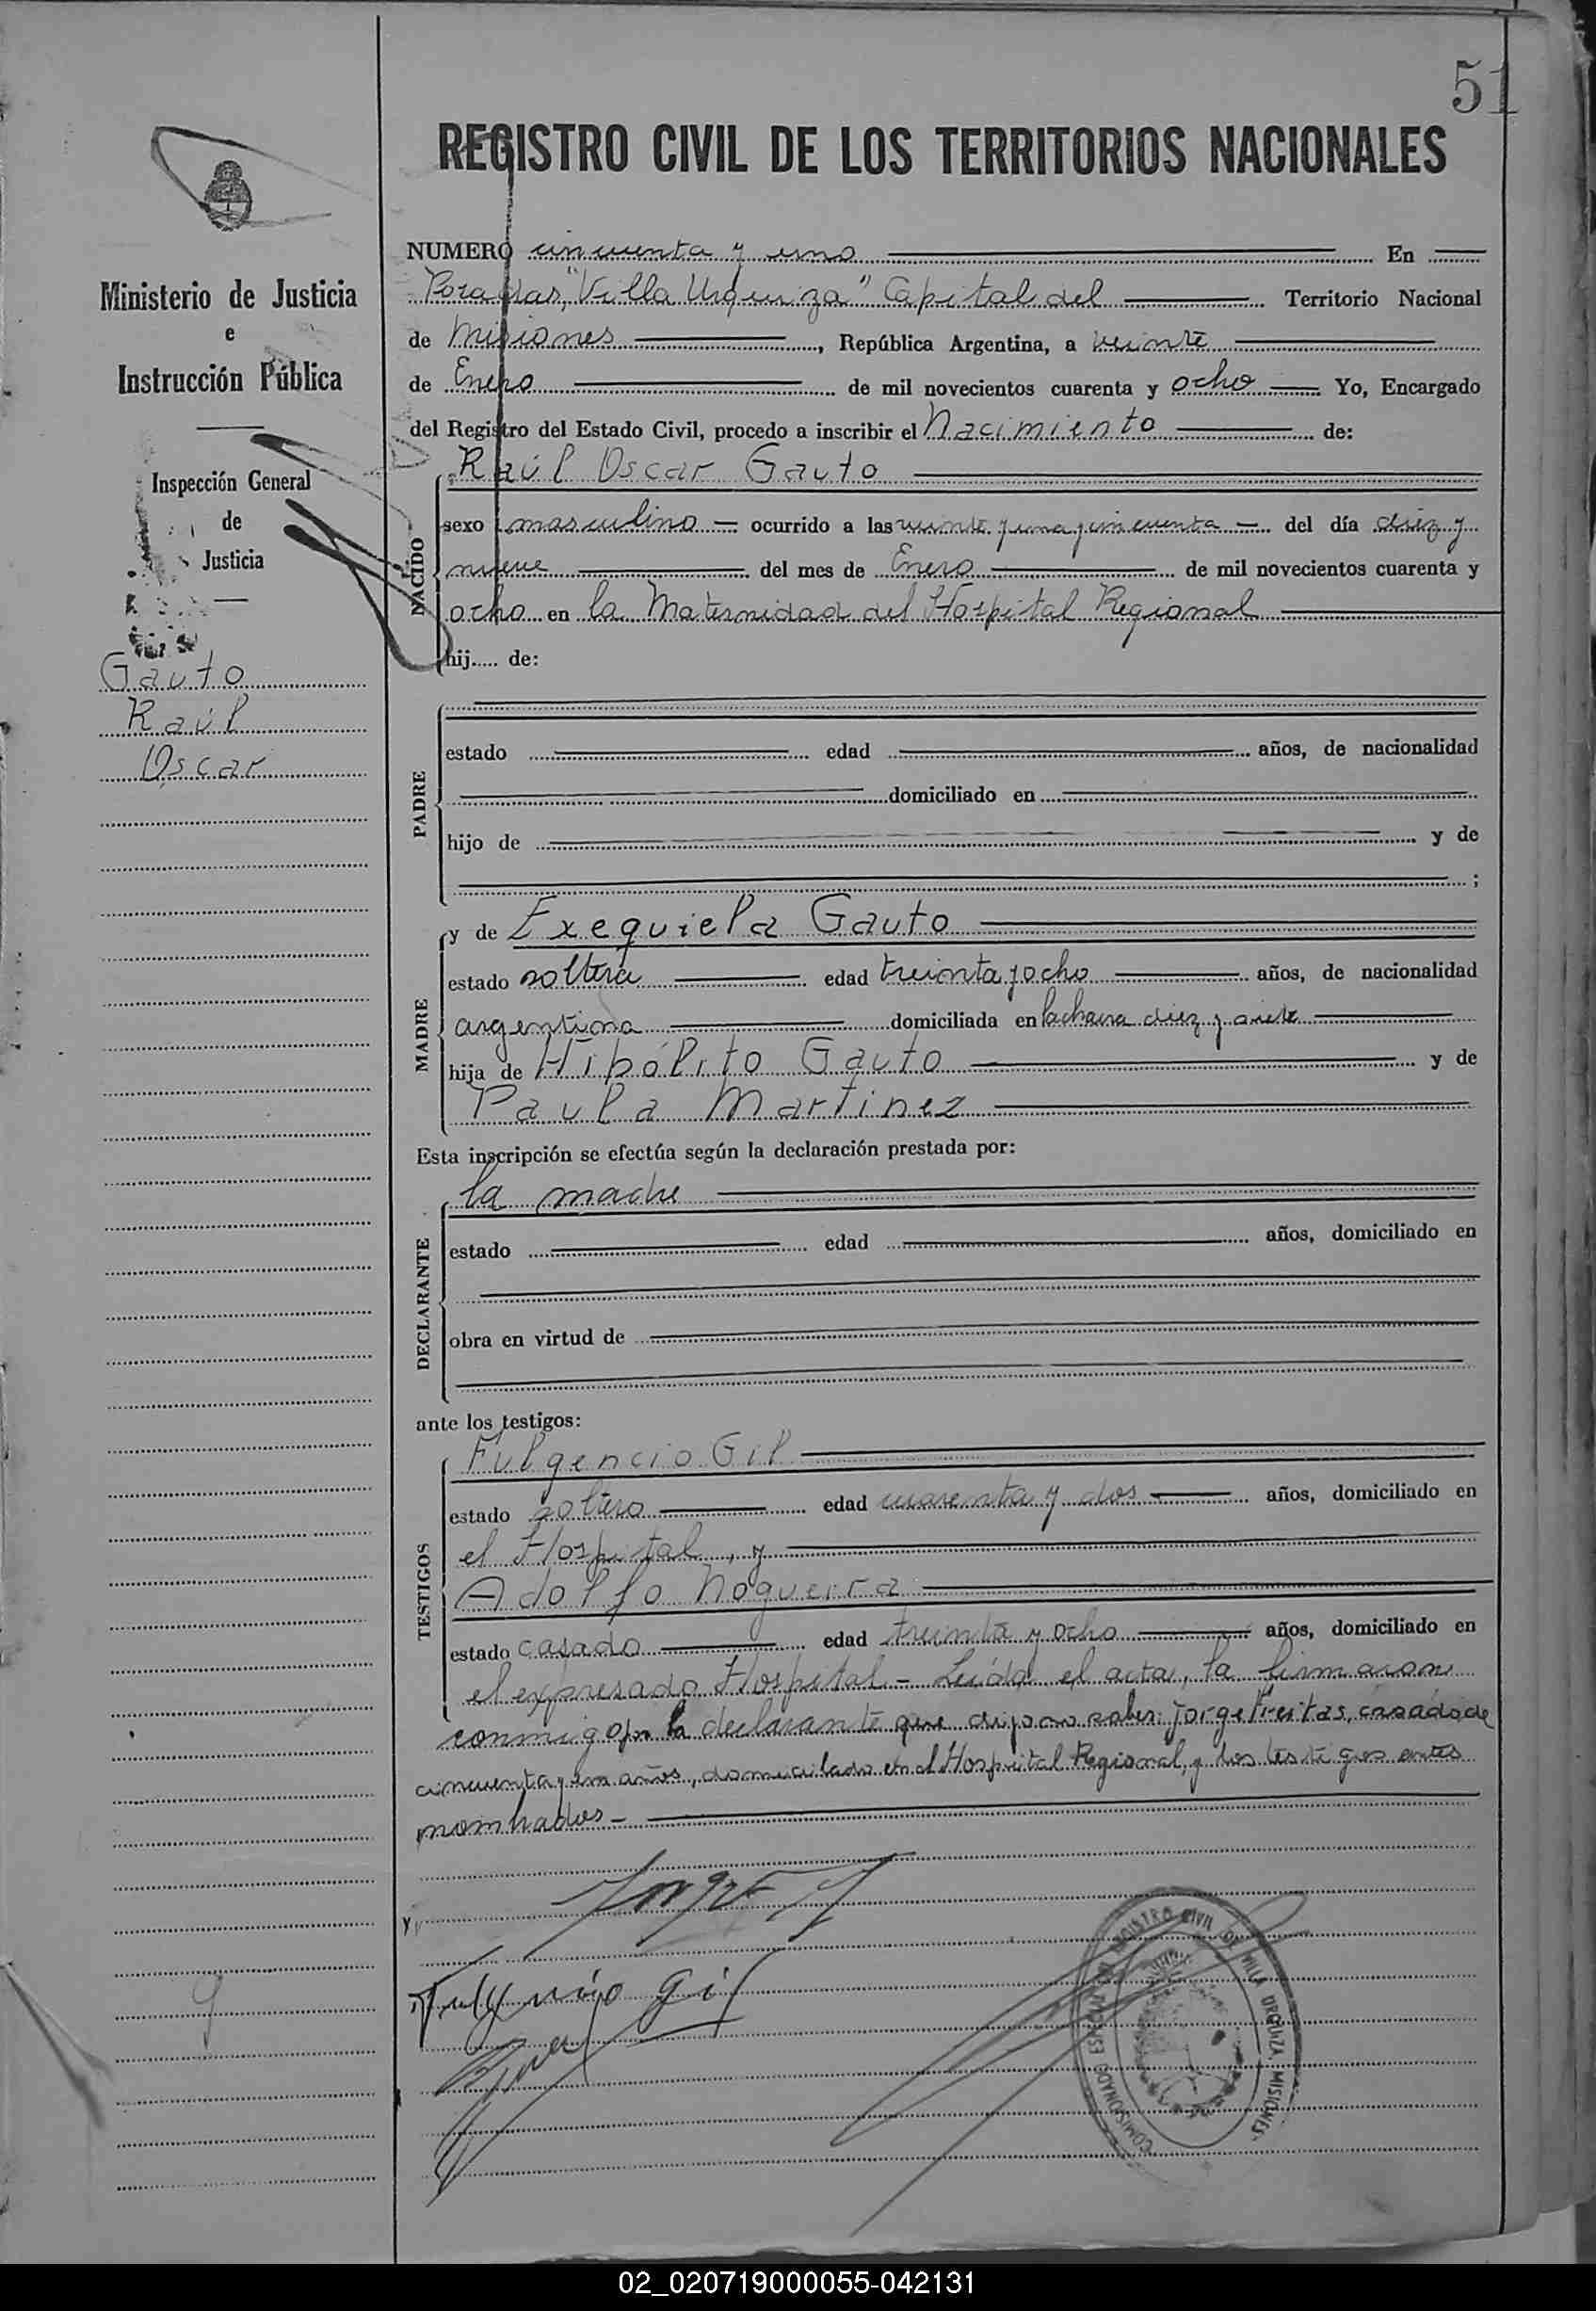 51
REGISTRO CIVIL DE LOS TERRITORIOS NACIONALES
Ministerio de Justicia
e
Instrucción Pública
Inspección General
de
Justicia
Gauto
Raúl
Oscar
NUMERO cincuenta y uno En
Posadas, "Villa Urquiza" Capital del Territorio Nacional
de Misiones, República Argentina, a veinte
de Enero de mil novecientos cuarenta y ocho Yo, Encargado
del Registro del Estado Civil, procedo a inscribir el Nacimiento de:
NACIDO
Raúl Oscar Gauto
sexo masculino ocurrido a las veinte y una y cincuenta del día diez y
nueve del mes de Enero de mil novecientos cuarenta y
ocho en la Maternidad del Hospital Regional
hij..... de:
PADRE
estado edad años, de nacionalidad
domiciliado en
hijo de y de
;
MADRE
y de Exequiela Gauto
estado soltera edad treinta y ocho años, de nacionalidad
argentina domiciliada en la chacra diez y siete
hija de Hipólito Gauto y de
Paula Martinez
Esta inscripción se efectúa según la declaración prestada por:
DECLARANTE
la madre
estado edad años, domiciliado en
obra en virtud de
ante los testigos:
TESTIGOS
Fulgencio Gil
estado soltero edad cuarenta y dos años, domiciliado en
el Hospital, y
Adolfo Nogueira
estado casado edad treinta y ocho años, domiciliado en
el expresado Hospital - Leída el acta, la firmaron
conmigo por la declarante que dijo no saber: Jorge Freitas, casado, de
cincuenta y un años, domiciliado en el Hospital Regional, y los testigos antes
nombrados -
Jorge F
Fulgencio Gil
COMISIONADO ESPECIAL DEL REGISTRO CIVIL DE VILLA URQUIZA, MISIONES
02_020719000055-042131